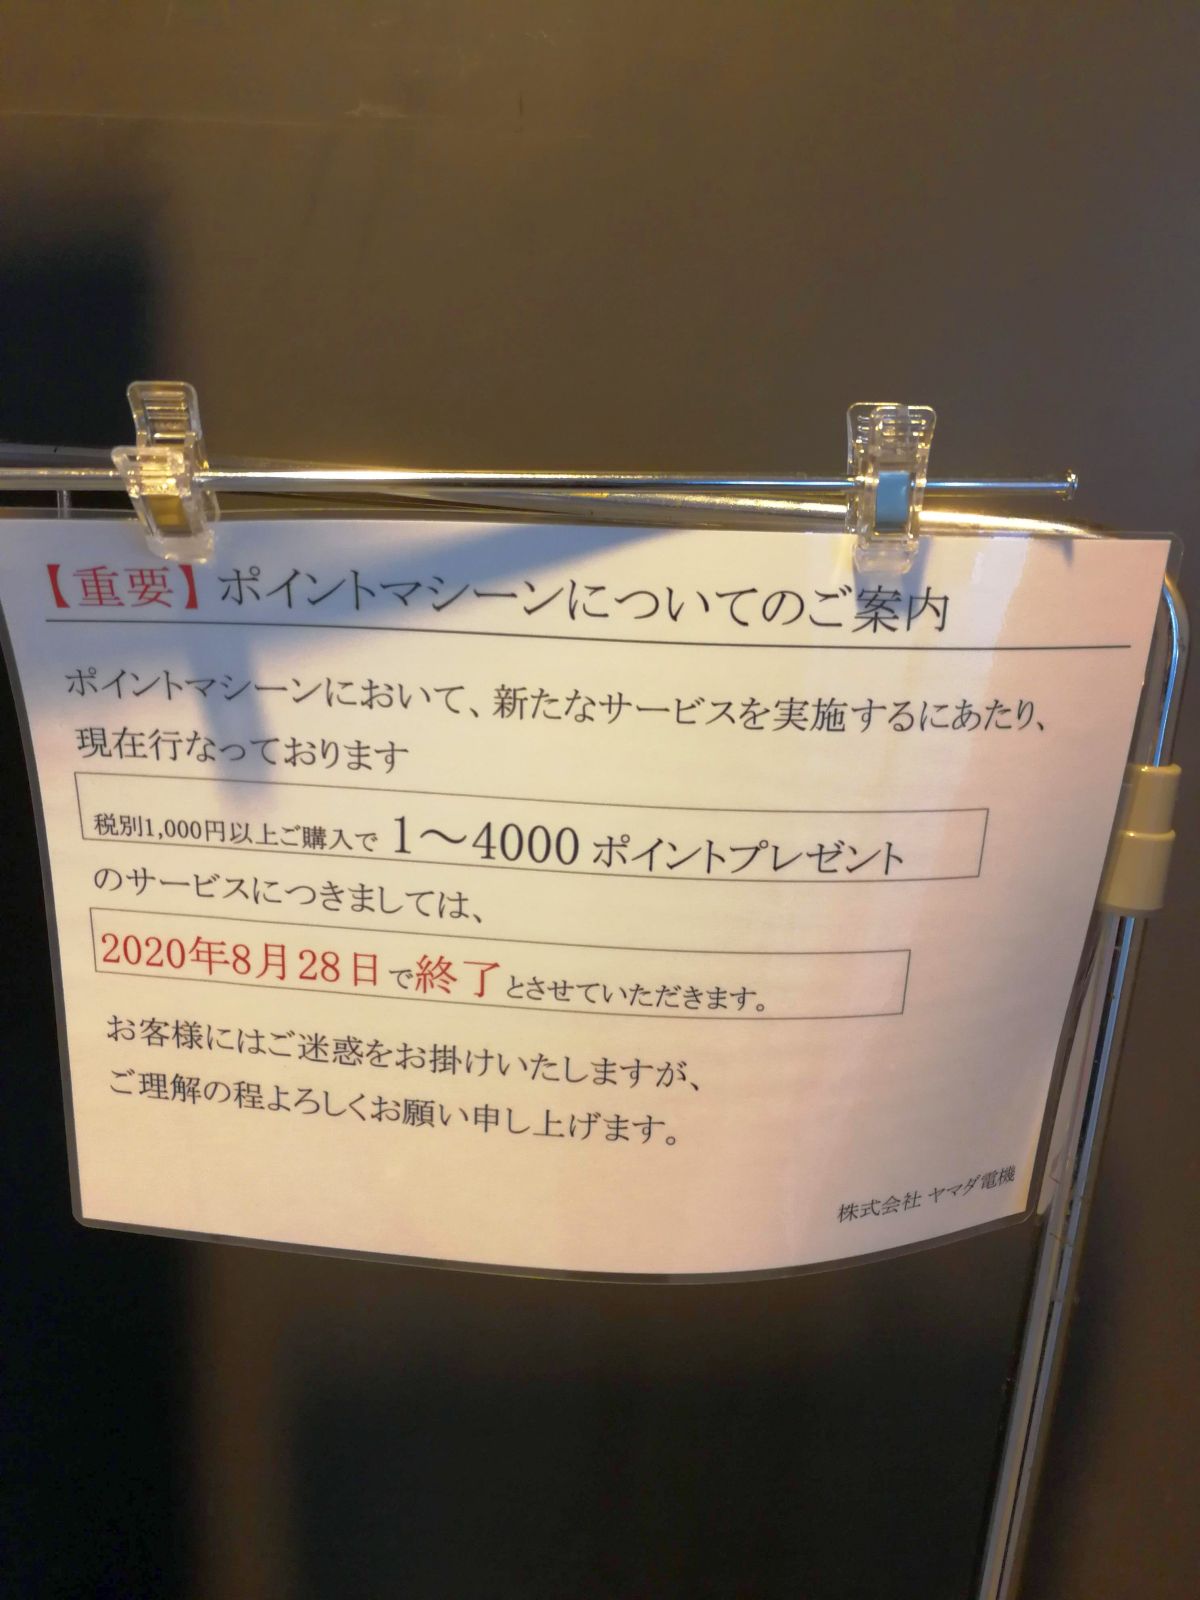 【重要】ポイントマシーンについてのご案内
ポイントマシーンにおいて、新たなサービスを実施するにあたり、
現在行なっております
税別1,000円以上ご購入で 1～4000 ポイントプレゼント
のサービスにつきましては、
2020年8月28日で終了とさせていただきます。
お客様にはご迷惑をお掛けいたしますが、
ご理解の程よろしくお願い申し上げます。
株式会社 ヤマダ電機